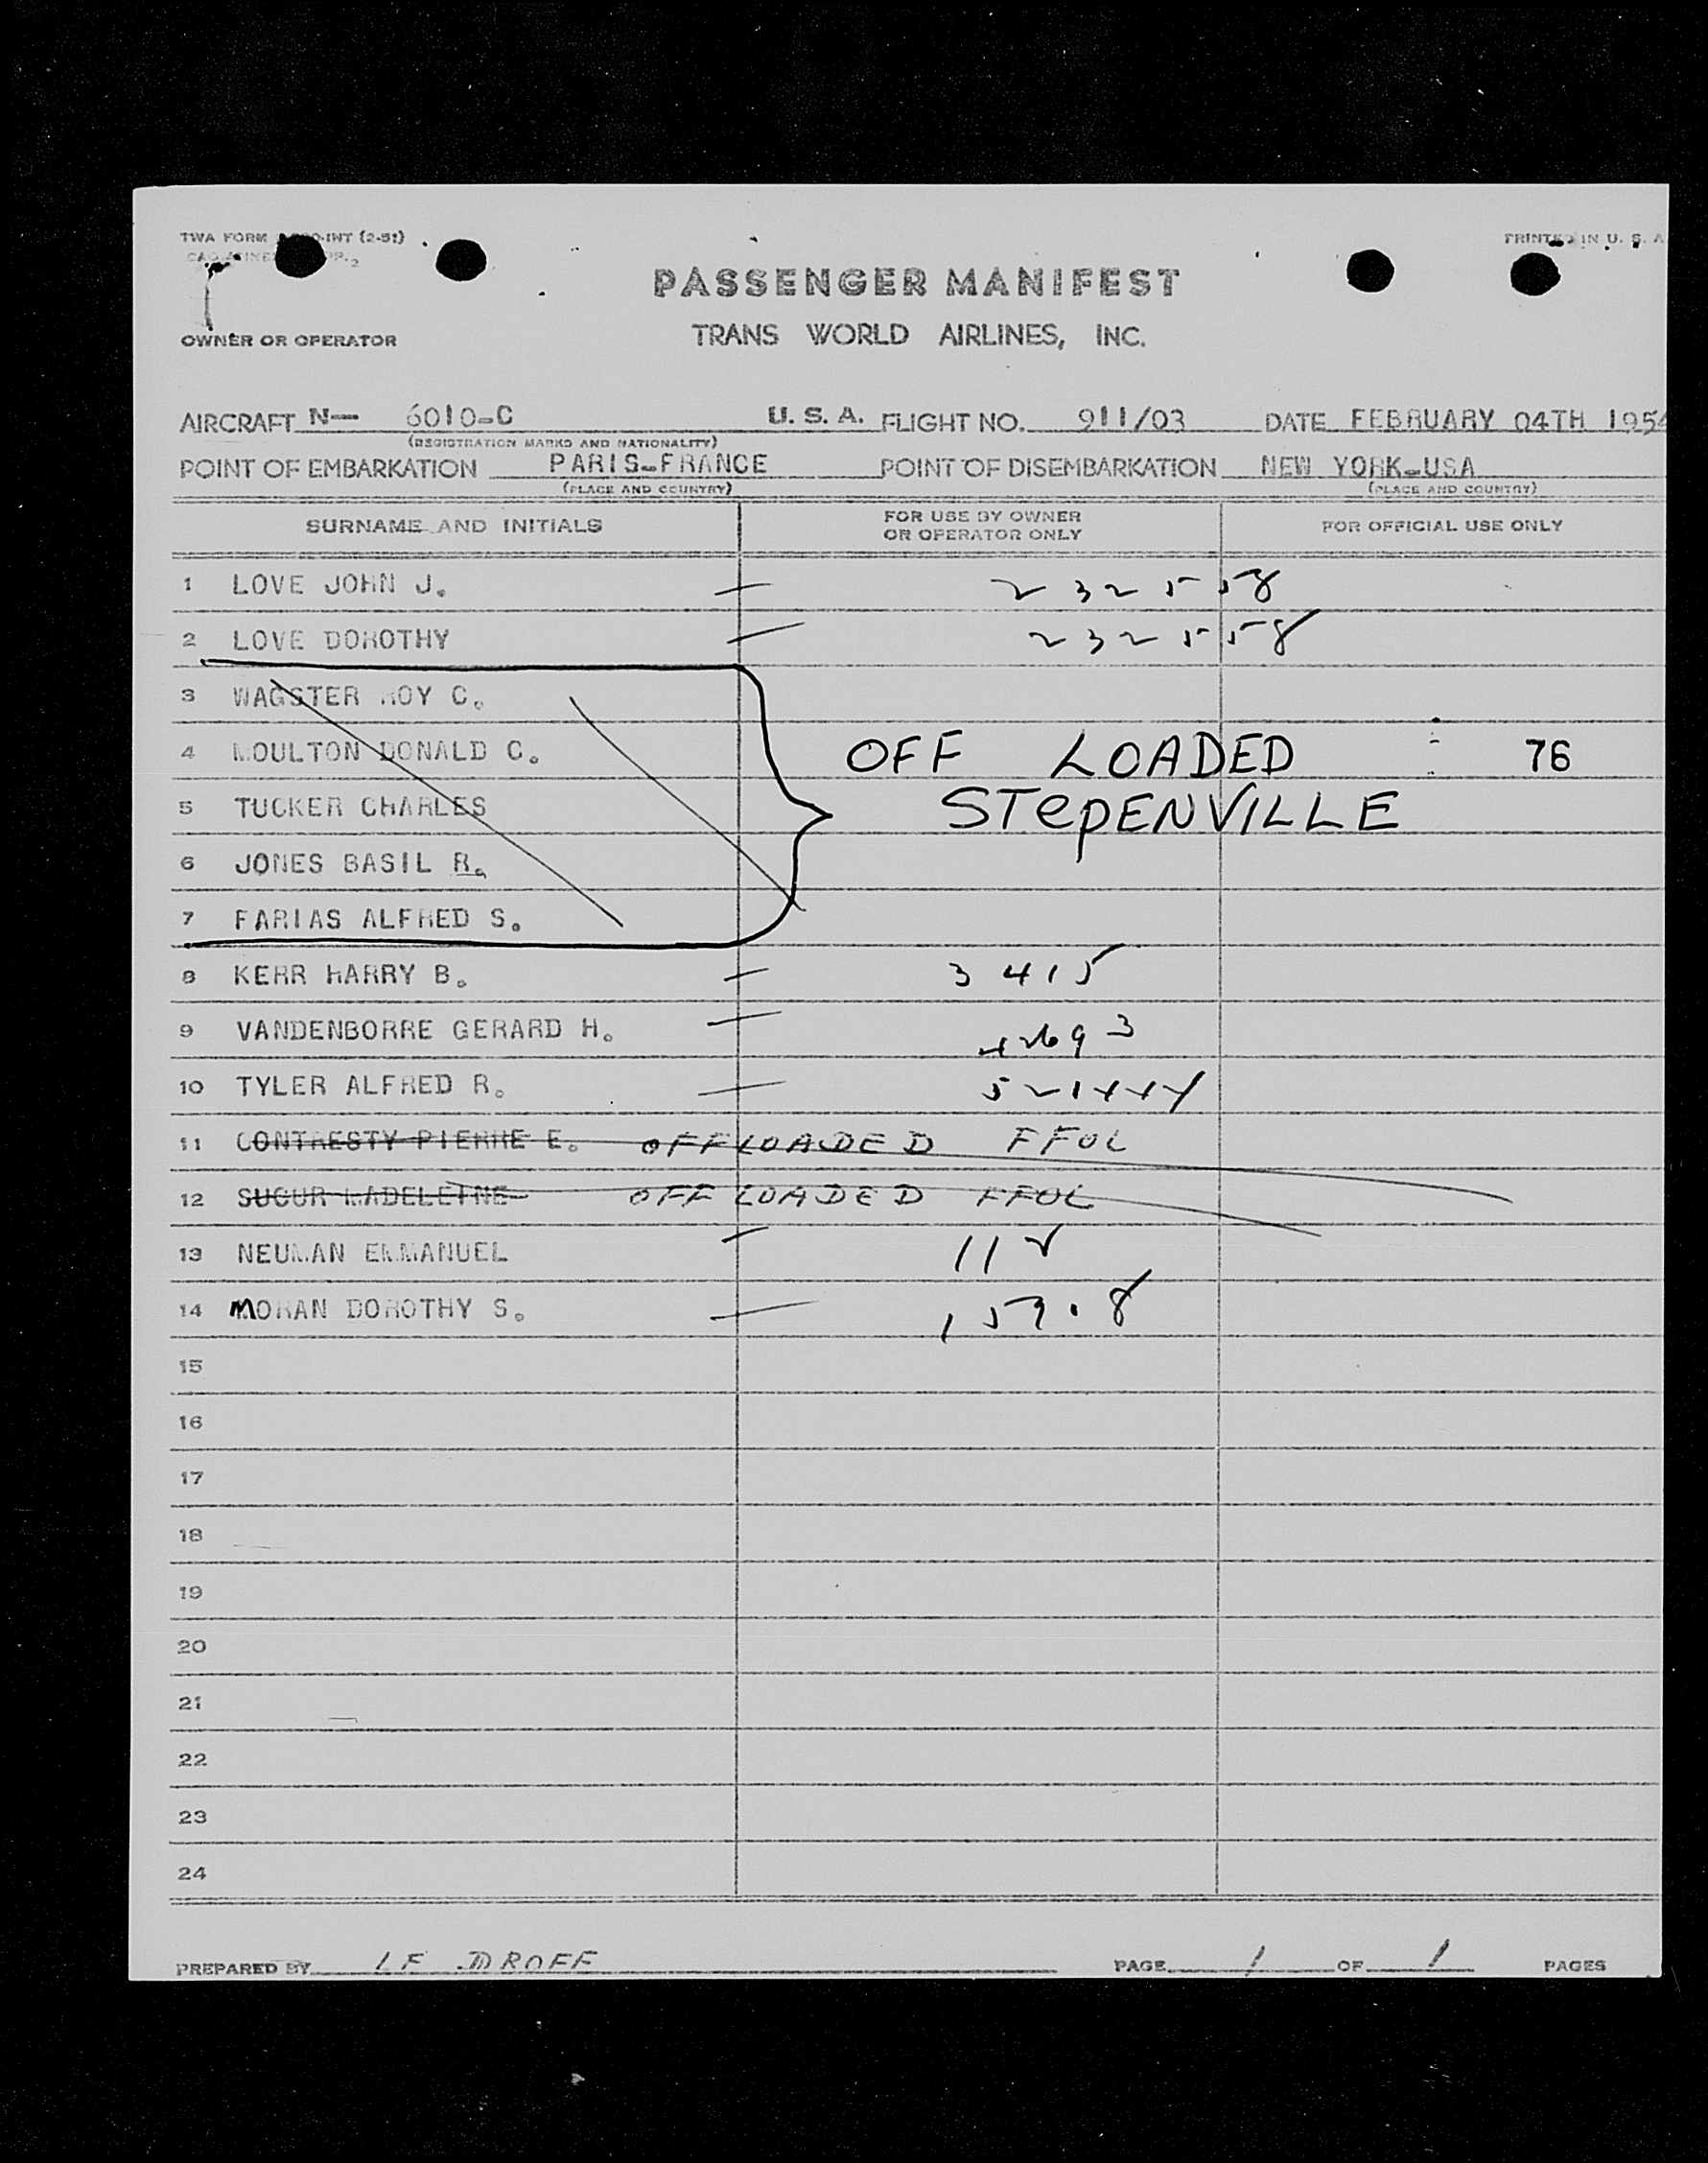 TWA FORM INT (2-51)
PRINTED IN U. S. A
PASSENGER MANIFEST
OWNER OR OPERATOR
TRANS WORLD AIRLINES, INC.
AIRCRAFT N— 6010-C U. S. A. FLIGHT NO. 911/03 DATE FEBRUARY 04TH 1954
(REGISTRATION MARKS AND NATIONALITY)
POINT OF EMBARKATION PARIS-FRANCE POINT OF DISEMBARKATION NEW YORK-USA
(PLACE AND COUNTRY) (PLACE AND COUNTRY)
SURNAME AND INITIALS FOR USE BY OWNER OR OPERATOR ONLY FOR OFFICIAL USE ONLY
1 LOVE JOHN J. — 232558
2 LOVE DOROTHY — 232558
3 WAGSTER ROY C.
4 MOULTON DONALD C. OFF LOADED : 76
5 TUCKER CHARLES STePENVILLE
6 JONES BASIL R.
7 FARIAS ALFRED S.
8 KERR HARRY B. — 3415
9 VANDENBORRE GERARD H. — 4693
10 TYLER ALFRED R. — 521444
11 CONTRESTY PIERRE E. OFFLOADED FFOL
12 SUCUR MADELEINE OFF LOADED FFOL
13 NEUMAN EMMANUEL — 112
14 MORAN DOROTHY S. —
15
16
17
18
19
20
21
22
23
24
PREPARED BY LE DROFF PAGE 1 OF 1 PAGES